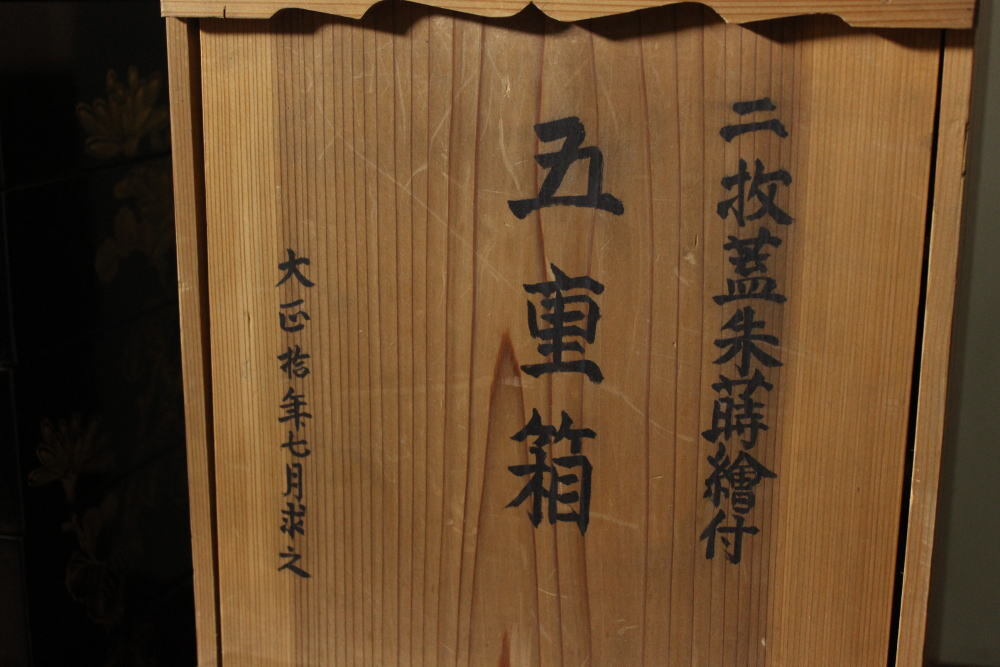 二枚蓋朱蒔繪付
五重箱
大正拾年七月求之